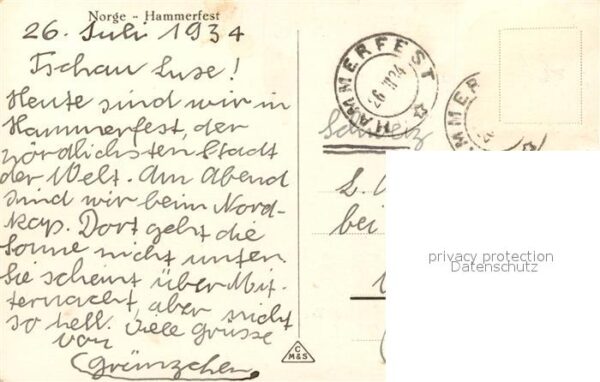 Norge - Hammerfest
26. Juli 1934
Tschau Luse!
Heute sind wir in
Hammerfest, der
nördlichsten Stadt
der Welt. Am Abend
sind wir beim Nord-
kap. Dort geht die
Sonne nicht unter.
Sie scheint über Mit-
ternacht, aber nicht
so hell. Viele Grüsse
von
Grünzchen
HAMMERFEST
26 VII 34
HAMMER
Schweiz
L.
bei
privacy protection
Datenschutz
C
M&S